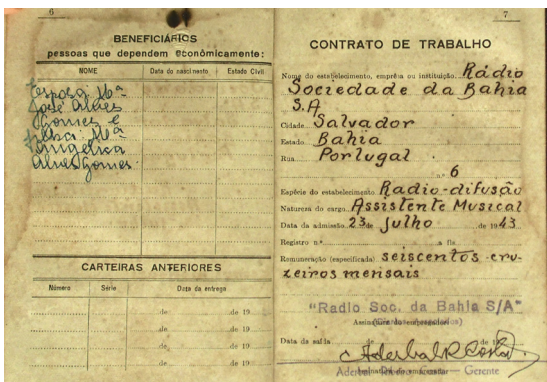 6
BENEFICIÁRIOS
pessoas que dependem econômicamente:
NOME Data do nascimento Estado Civil
Esposa Mª
José Alves
Gomes e
filha: Mª
Angélica
Alves Gomes.
CARTEIRAS ANTERIORES
Número Série Data da entrega
de de 19
de de 19
de de 19
de de 19
7
CONTRATO DE TRABALHO
Nome do estabelecimento, emprêsa ou instituição Rádio
Sociedade da Bahia
S.A
Cidade Salvador
Estado Bahia
Rua Portugal
n.º 6
Espécie do estabelecimento Radio-difusão
Natureza do cargo Assistente Musical
Data da admissão 23 de julho de 1943
Registro n.º a fls
Remuneração (especificada) seiscentos cru-
zeiros mensais
"Radio Soc. da Bahia S/A"
Data da saída de de 19
Aderbal Gerente